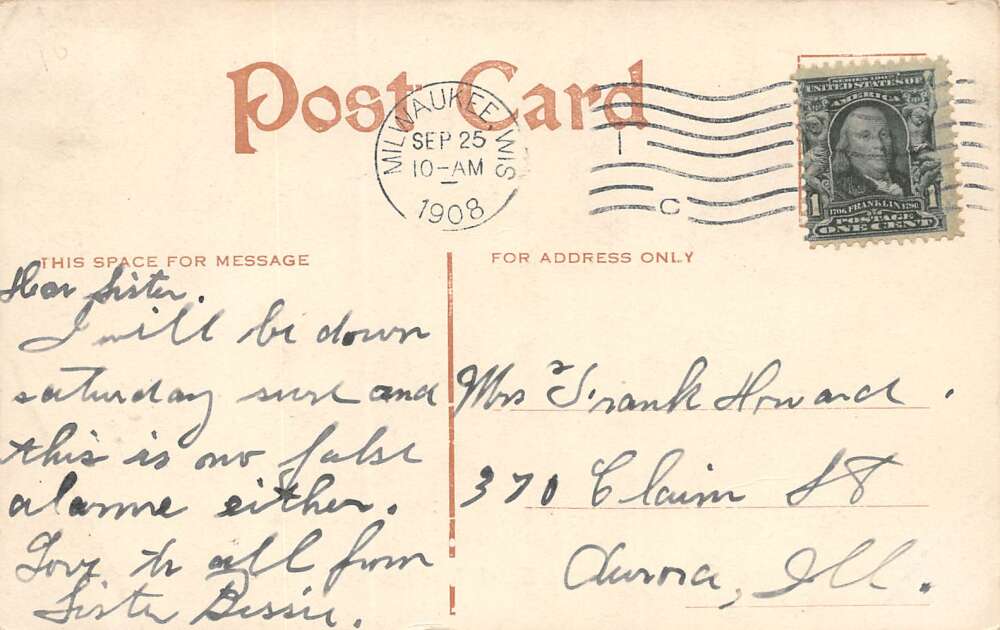 Post Card
MILWAUKEE, WIS
SEP 25
10-AM
1908
C
SERIES 1902
UNITED STATES OF
AMERICA
1 1
1706 FRANKLIN 1790
POSTAGE
ONE CENT
THIS SPACE FOR MESSAGE
FOR ADDRESS ONLY
Dear Sister.
I will be down
saturday sure and
this is no false
alarme either.
Love to all from
Sister Bessie.
Mrs Frank Howard.
370 Claim St
Aurora, Ill.